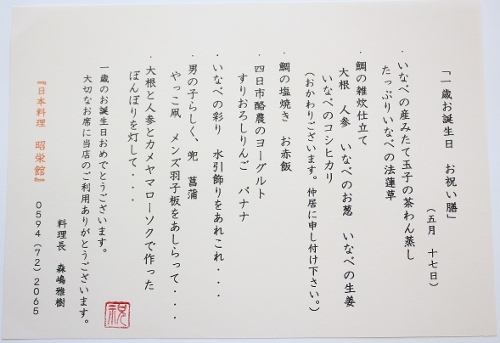 「一歳お誕生日　お祝い膳」
（五月　十七日）
・いなべの産みたて玉子の茶わん蒸し
たっぷりいなべの法蓮草
・鯛の雑炊仕立て
大根　人参　いなべのお葱　いなべの生姜
いなべのコシヒカリ
（おかわりございます。仲居に申し付け下さい。）
・鯛の塩焼き　お赤飯
・四日市酪農のヨーグルト
すりおろしりんご　バナナ
・いなべの彩り　水引飾りをあれこれ・・・
・男の子らしく、兜　菖蒲
やっこ凧　メンズ羽子板をあしらって・・・
・大根と人参とカメヤマローソクで作った
ぼんぼりを灯して・・・
一歳のお誕生日おめでとうございます。
大切なお席に当店のご利用ありがとうございます。
料理長　森嶋雅樹
『日本料理　昭栄館』
0594（72）2065
祝